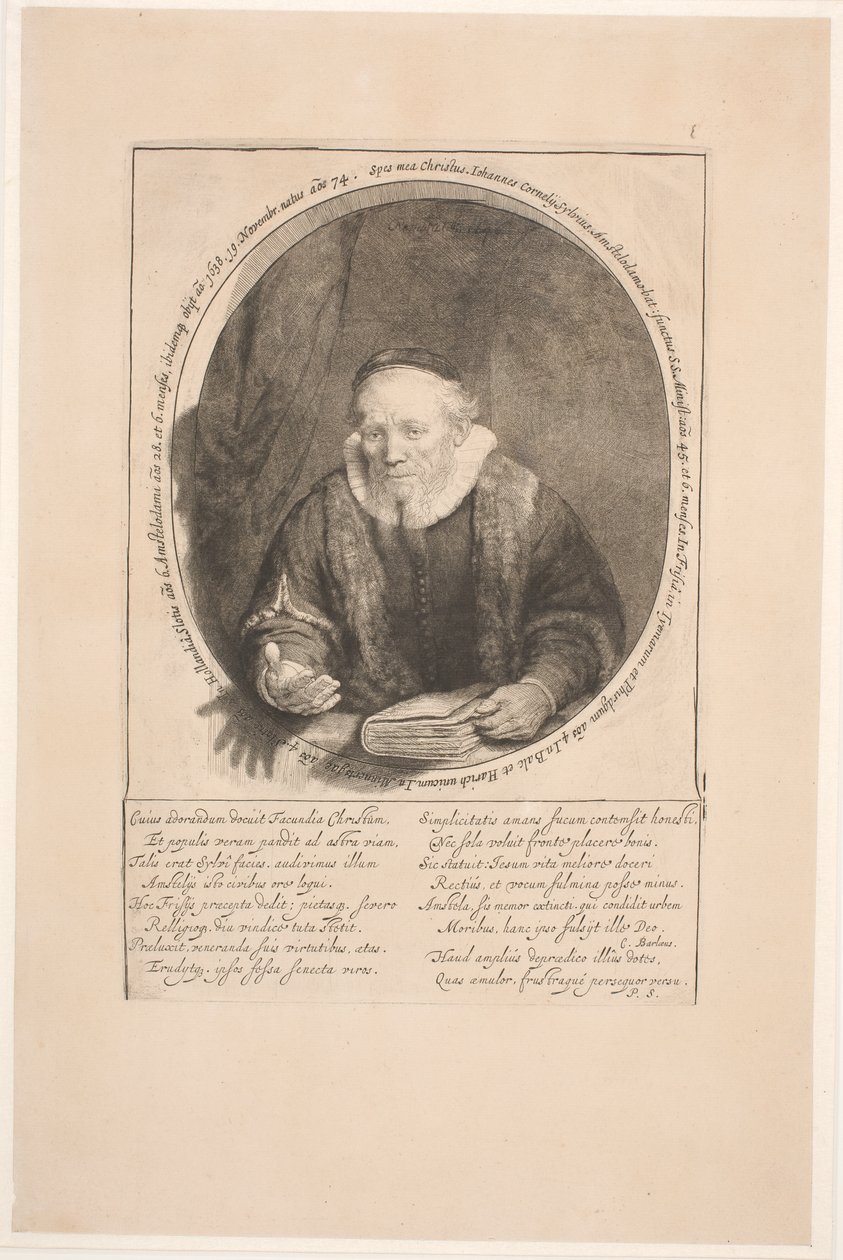 Spes mea Christus. Iohannes Cornelij Sylvius, Amstelodamo-bat: functus S.S. Minist: aōs 45. et 6. menses. In Frisiâ in Tyemarum et Phirdgum aōs 4. In Balc et Harich unicum. In Minnertsgae aōs 4. In Hollandiâ Slotis aōs 6. Amstelodami aōs 28. et 6. menses, ibidemq̧ obijt aō. 1638. 19. Novembr. natus aōs 74.
Cuius adorandum docuit Facundia Christum,
Et populis veram pandit ad astra viam,
Talis erat Sylvî facies. audivimus illum
Amstelijs isto civibus ore loqui.
Hoc Frisijs præcepta dedit; pietasq̧. severo
Relligioq̧. diu vindice tuta stetit.
Præluxit, veneranda suis virtutibus, ætas.
Erudytq̧. ipsos fessa senecta viros.
Simplicitatis amans fucum contemsit honesti,
Nec sola voluit fronte placere bonis.
Sic statuit: Iesum vita meliore doceri
Rectiùs, et vocum fulmina posse minus.
Amstela, sis memor extincti. qui condidit urbem
Moribus, hanc ipso fulsijt ille Deo.
C. Barlæus.
Haud ampliùs deprædico illius dotes,
Quas æmulor, frustraque persequor versu.
P. S.